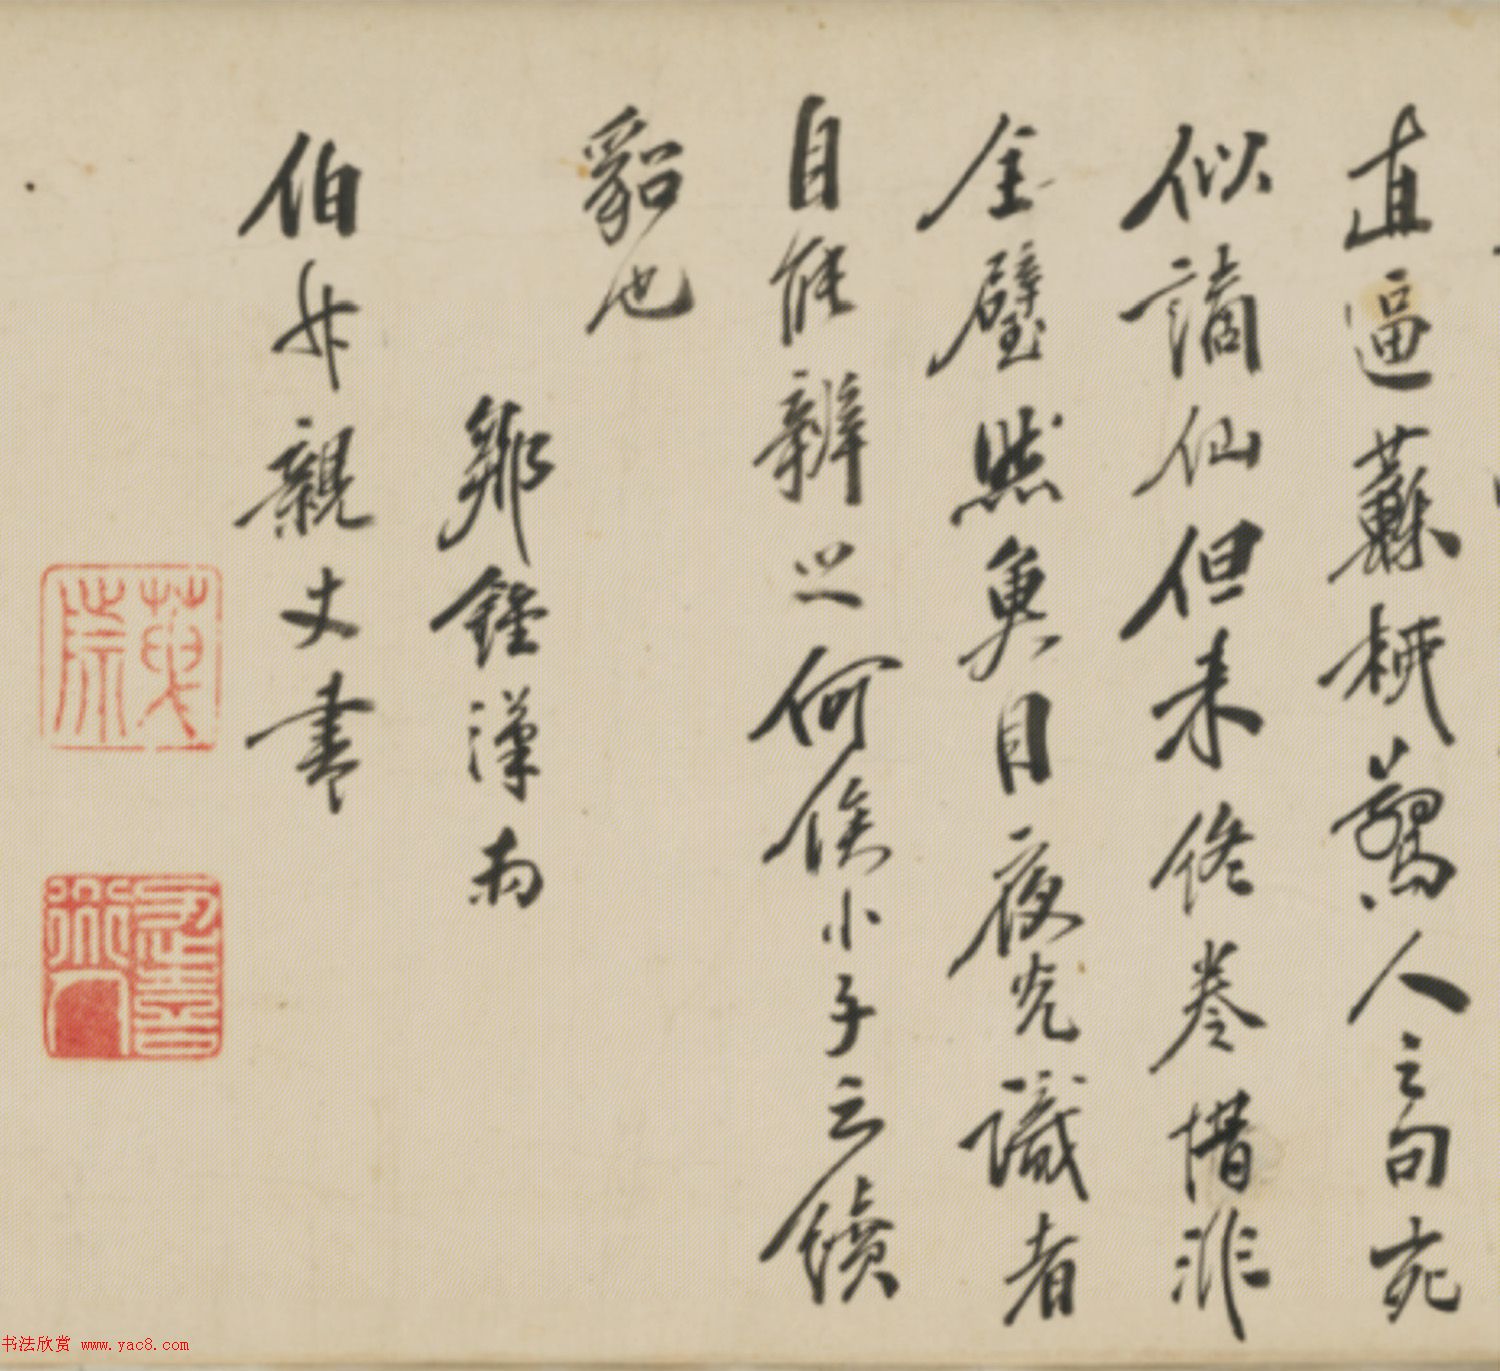 直逼蘇梅驚人之句宛
似謫仙但未終卷惜非
全璧然魚目夜光識者
自能辨之何俟小子之續
貂也
鄭鍾漢南
伯
親丈書
書法欣赏 www.yac8.com